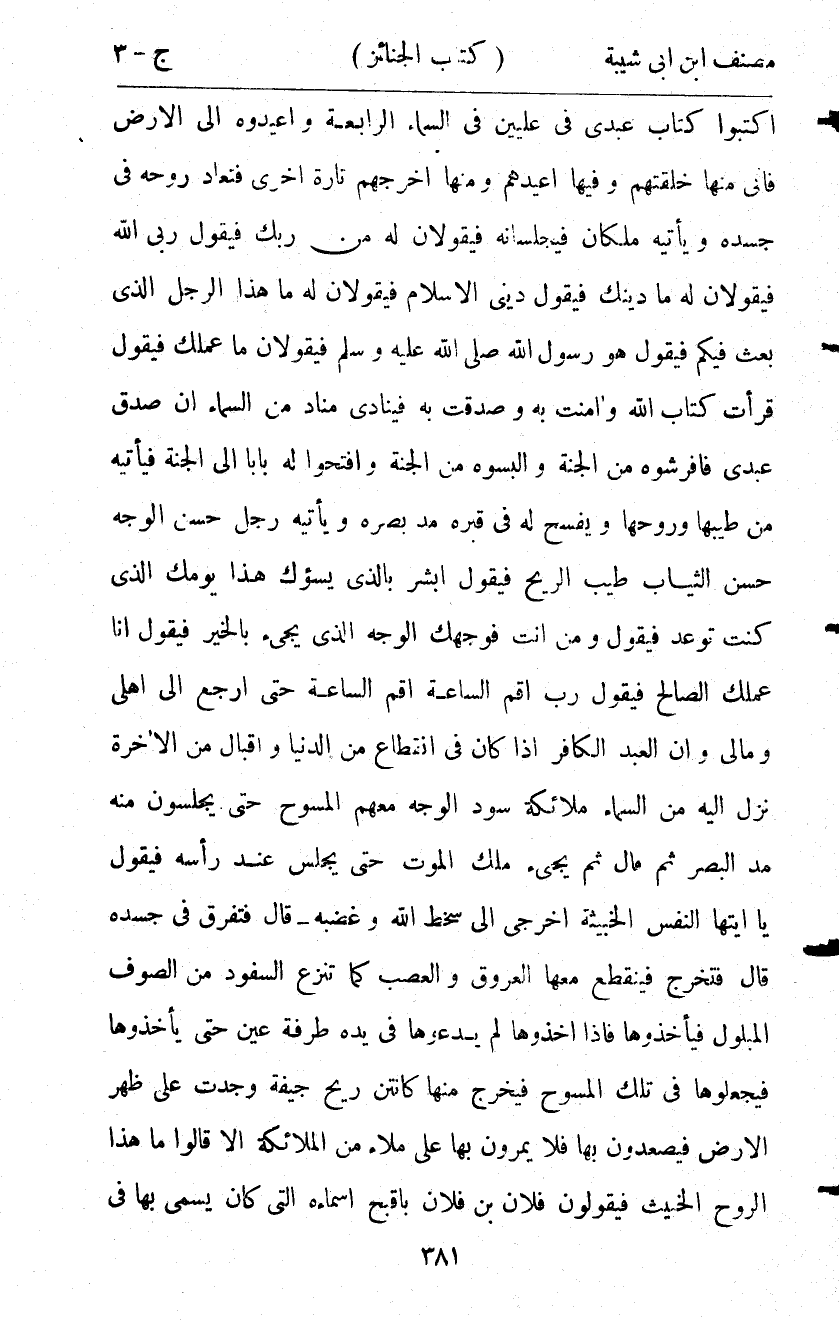 مصنف ابن ابى شيبة ( كتاب الجنائز ) ج - ٣
اكتبوا كتاب عبدى فى عليين فى السماء الرابعة و اعيدوه الى الارض
فانى منها خلقتهم و فيها اعيدهم و منها اخرجهم تارة اخرى فتعاد روحه فى
جسده و يأتيه ملكان فيجلسانه فيقولان له من ربك فيقول ربى الله
فيقولان له ما دينك فيقول دينى الاسلام فيقولان له ما هذا الرجل الذى
بعث فيكم فيقول هو رسول الله صلى الله عليه و سلم فيقولان ما عملك فيقول
قرأت كتاب الله و'امنت به و صدقت به فينادى مناد من السماء ان صدق
عبدى فافرشوه من الجنة و البسوه من الجنة و افتحوا له بابا الى الجنة فيأتيه
من طيبها وروحها و يفسح له فى قبره مد بصره و يأتيه رجل حسن الوجه
حسن الثياب طيب الريح فيقول ابشر بالذى يسؤك هذا يومك الذى
كنت توعد فيقول و من انت فوجهك الوجه الذى يجىء بالخير فيقول انا
عملك الصالح فيقول رب اقم الساعة اقم الساعة حتى ارجع الى اهلى
و مالى و ان العبد الكافر اذا كان فى انقطاع من الدنيا و اقبال من الا'خرة
نزل اليه من السماء ملائكة سود الوجه معهم المسوح حتى يجلسون منه
مد البصر ثم قال ثم يجىء ملك الموت حتى يجلس عند رأسه فيقول
يا ايتها النفس الخبيثة اخرجى الى سخط الله و غضبه ـ قال فتفرق فى جسده
قال فتخرج فينقطع معها العروق و العصب كما تنزع السفود من الصوف
المبلول فيأخذوها فاذا اخذوها لم يدعوها فى يده طرفة عين حتى يأخذوها
فيجعلوها فى تلك المسوح فيخرج منها كانتن ريح جيفة وجدت على ظهر
الارض فيصعدون بها فلا يمرون بها على ملاء من الملائكة الا قالوا ما هذا
الروح الخبيث فيقولون فلان بن فلان باقبح اسماءه التى كان يسمى بها فى
٣٨١